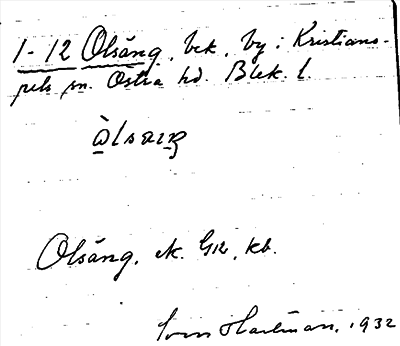 1-12 Olsäng, bek. by i Kristians-
pels sn. Östra hd. Blek. l.
Olsäng, ek. G12, kb.
Sven Hartman, 1932